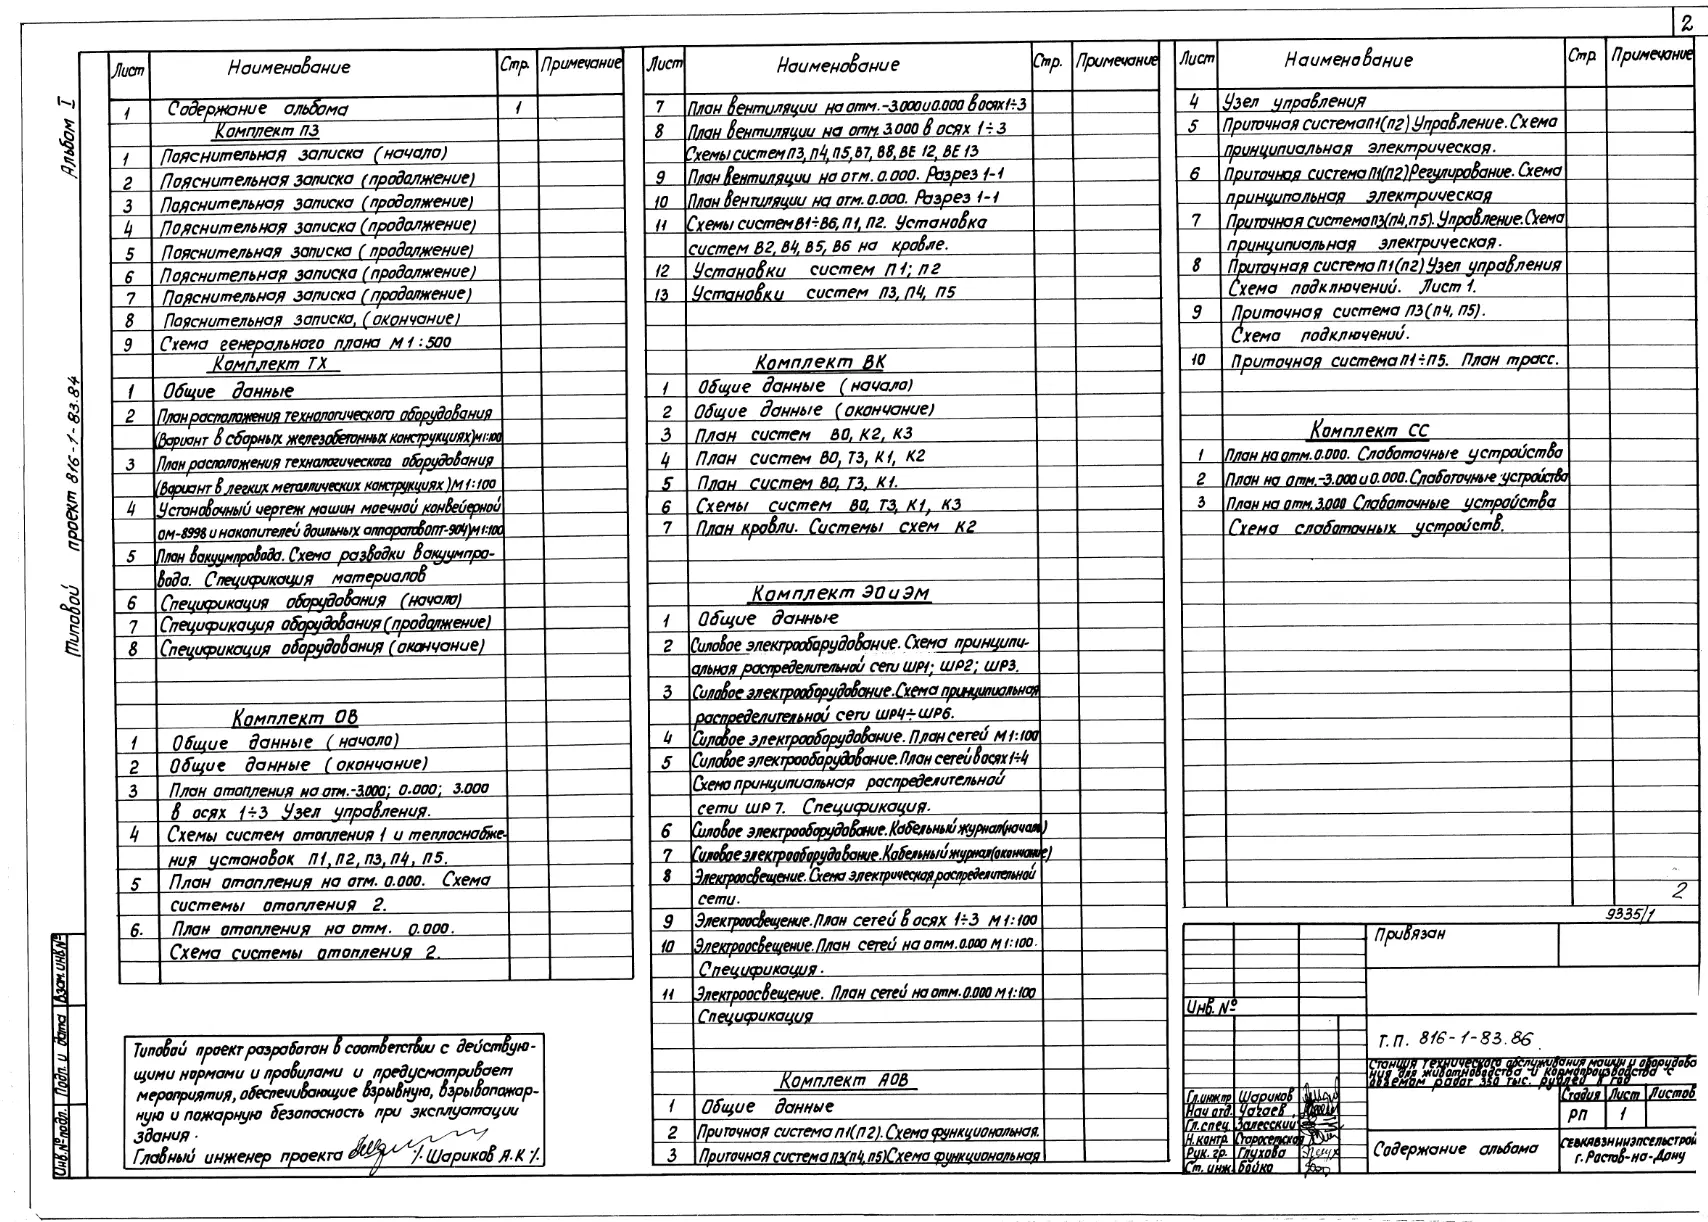 2
Альбом I
Типовой проект 816-1-83.84
Лист Наименование Стр. Примечание
1 Содержание альбома 1
Комплект ПЗ
1 Пояснительная записка (начало)
2 Пояснительная записка (продолжение)
3 Пояснительная записка (продолжение)
4 Пояснительная записка (продолжение)
5 Пояснительная записка (продолжение)
6 Пояснительная записка (продолжение)
7 Пояснительная записка (продолжение)
8 Пояснительная записка, (окончание)
9 Схема генерального плана М 1:500
Комплект ТХ
1 Общие данные
2 План расположения технологического оборудования
(Вариант в сборных железобетонных конструкциях) М1:100
3 План расположения технологического оборудования
(Вариант в легких металлических конструкциях) М 1:100
4 Установочный чертеж машин моечной конвейерной
ОМ-8998 и накопителей доильных аппаратов ОПТ-904) М 1:100
5 План вакуумпровода. Схема разводки вакуумпро-
вода. Спецификация материалов
6 Спецификация оборудования (начало)
7 Спецификация оборудования (продолжение)
8 Спецификация оборудования (окончание)
Комплект ОВ
1 Общие данные (начало)
2 Общие данные (окончание)
3 План отопления на отм.-3.000; 0.000; 3.000
в осях 1÷3 Узел управления.
4 Схемы систем отопления 1 и теплоснабже-
ния установок П1, П2, П3, П4, П5.
5 План отопления на отм. 0.000. Схема
системы отопления 2.
6. План отопления на отм. 0.000.
Схема системы отопления 2.
Типовой проект разработан в соответствии с действую-
щими нормами и правилами и предусматривает
мероприятия, обеспечивающие взрывную, взрывопожар-
ную и пожарную безопасность при эксплуатации
здания.
Главный инженер проекта /Шариков А.К/.
Инв.№подл. Подп. и дата Взам.инв.№
Лист Наименование Стр. Примечание
7 План вентиляции на отм.-3.000 и 0.000 в осях 1÷3
8 План вентиляции на отм. 3.000 в осях 1÷3
Схемы систем П3, П4, П5, В7, В8, ВЕ 12, ВЕ 13
9 План вентиляции на отм. 0.000. Разрез 1-1
10 План вентиляции на отм. 0.000. Разрез 1-1
11 Схемы систем В1÷В6, П1, П2. Установка
систем В2, В4, В5, В6 на кровле.
12 Установки систем П1; П2
13 Установки систем П3, П4, П5
Комплект ВК
1 Общие данные (начало)
2 Общие данные (окончание)
3 План систем В0, К2, К3
4 План систем В0, Т3, К1, К2
5 План систем В0, Т3, К1.
6 Схемы систем В0, Т3, К1, К3
7 План кровли. Системы схем К2
Комплект ЭО и ЭМ
1 Общие данные
2 Силовое электрооборудование. Схема принципи-
альная распределительной сети ШР1; ШР2; ШР3.
3 Силовое электрооборудование. Схема принципиальная
распределительной сети ШР4÷ШР6.
4 Силовое электрооборудование. План сетей М 1:100
5 Силовое электрооборудование. План сетей в осях 1÷4
Схема принципиальная распределительной
сети ШР 7. Спецификация.
6 Силовое электрооборудование. Кабельный журнал(начало)
7 Силовое электрооборудование. Кабельный журнал(окончание)
8 Электроосвещение. Схема электрическая распределительной
сети.
9 Электроосвещение. План сетей в осях 1÷3 М 1:100
10 Электроосвещение. План сетей на отм. 0.000 М 1:100.
Спецификация.
11 Электроосвещение. План сетей на отм. 0.000 М 1:100
Спецификация
Комплект АОВ
1 Общие данные
2 Приточная система П1(П2). Схема функциональная.
3 Приточная система П3(П4, П5) Схема функциональная
Лист Наименование Стр Примечание
4 Узел управления
5 Приточная система П1(П2) Управление. Схема
принципиальная электрическая.
6 Приточная система П1(П2) Регулирование. Схема
принципальная электрическая
7 Приточная система П3(П4, П5). Управление. Схема
принципиальная электрическая.
8 Приточная система П1(П2) Узел управления
Схема подключений. Лист 1.
9 Приточная система П3(П4, П5).
Схема подключений.
10 Приточная система П1÷П5. План трасс.
Комплект СС
1 План на отм. 0.000. Слаботочные устройства
2 План на отм.-3.000 и 0.000. Слаботочные устройства
3 План на отм. 3.000 Слаботочные устройства
Схема слаботочных устройств.
2
9335/1
Привязан
Инв. №
Т.П. 816-1-83.86
Станция технического обслуживания машин и оборудова
ния для животноводства и кормопроизводства с
объемам работ 350 тыс. рублей в год
Гл.инж.пр Шариков
Нач отд. Чагаев
Гл.спец. Залесский
Н.контр. Старосельская
Рук. гр. Глухова
Ст. инж. Бойко
Стадия Лист Листов
РП 1
Содержание альбома
СЕВКАВЗНИИЭПСЕЛЬСТРОЙ
г. Ростов-на-Дону